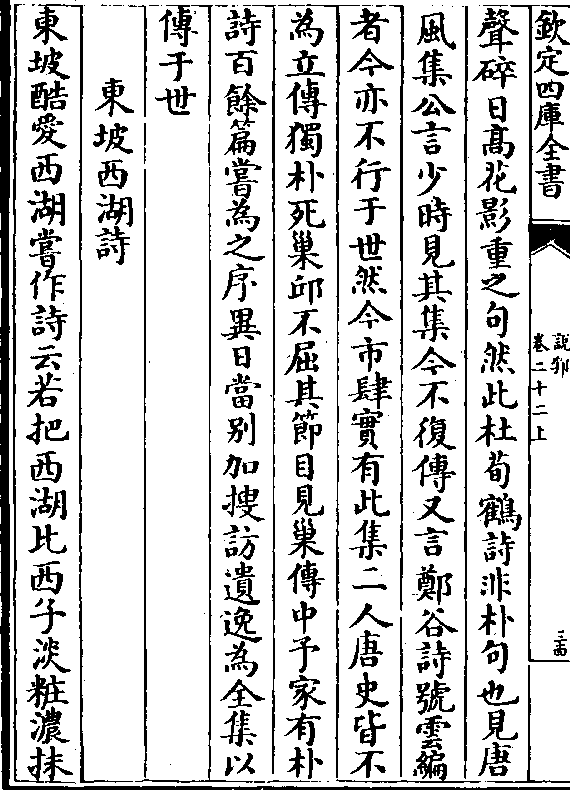 欽定四庫全書
說郛
卷二十二上
聲碎日髙花影重之句然此杜荀鶴詩非朴句也見唐
風集公言少時見其集今不復傳又言鄭谷詩號雲編
者今亦不行于世然今市肆實有此集二人唐史皆不
為立傳獨朴死巢邱不屈其節目見巢傳中予家有朴
詩百餘篇嘗為之序異日當別加搜訪遺逸為全集以
傳于世
東坡西湖詩
東坡酷愛西湖嘗作詩云若把西湖比西子淡粧濃抹